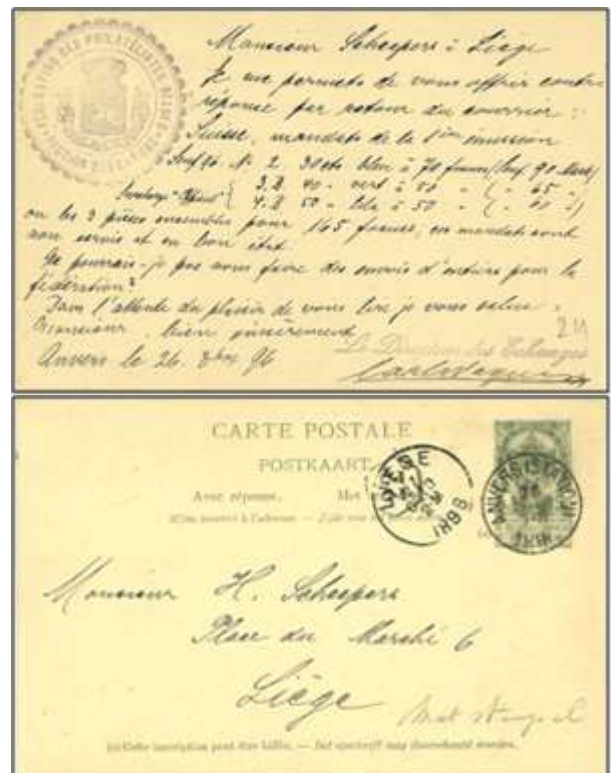 FÉDÉRATION DES PHILATÉLISTES BELGES
Monsieur Scheepers à Liège
Je me permets de vous offrir contre
réponse par retour du courrier :
Suisse, mandats de la 1ière émission
N° 2. 30cts bleu à 70 francs (Senf 90 Mark)
3.B. 40 - vert à 50 - ( - 65 - )
4.B. 50 - lila à 50 - ( - 60 - )
ou les 3 pièces ensembles pour 165 francs, ces mandats sont
non servis et en bon état.
Ne pourrais-je pas vous faire des envois d'entiers pour la
fédération?
Dans l'attente du plaisir de vous lire je vous salue,
Monsieur, bien sincèrement
24
Anvers le 26. 8bre 96
Le Directeur des Echanges
CARTE POSTALE
POSTKAART
Avec réponse. Met
LIEGE
1896
ANVERS (STATION)
Monsieur H. Scheepers
Place du Marché 6
Liège
Met stempel
(1) Cette inscription peut être biffée. — Het opschrift mag doorschrabd worden.